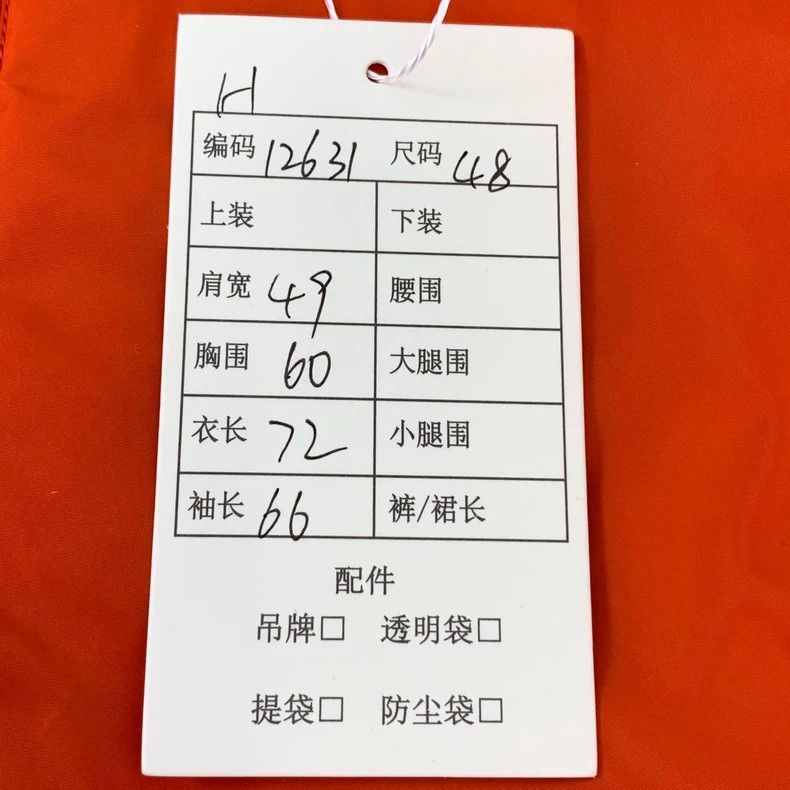 H
编码 12631 尺码 48
上装 下装
肩宽 49 腰围
胸围 60 大腿围
衣长 72 小腿围
袖长 66 裤/裙长
配件
吊牌□ 透明袋□
提袋□ 防尘袋□